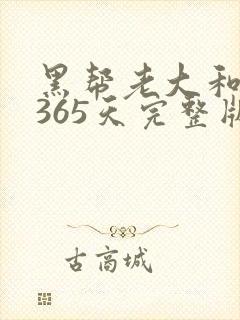 黑帮老大和
365天完整版
古商城